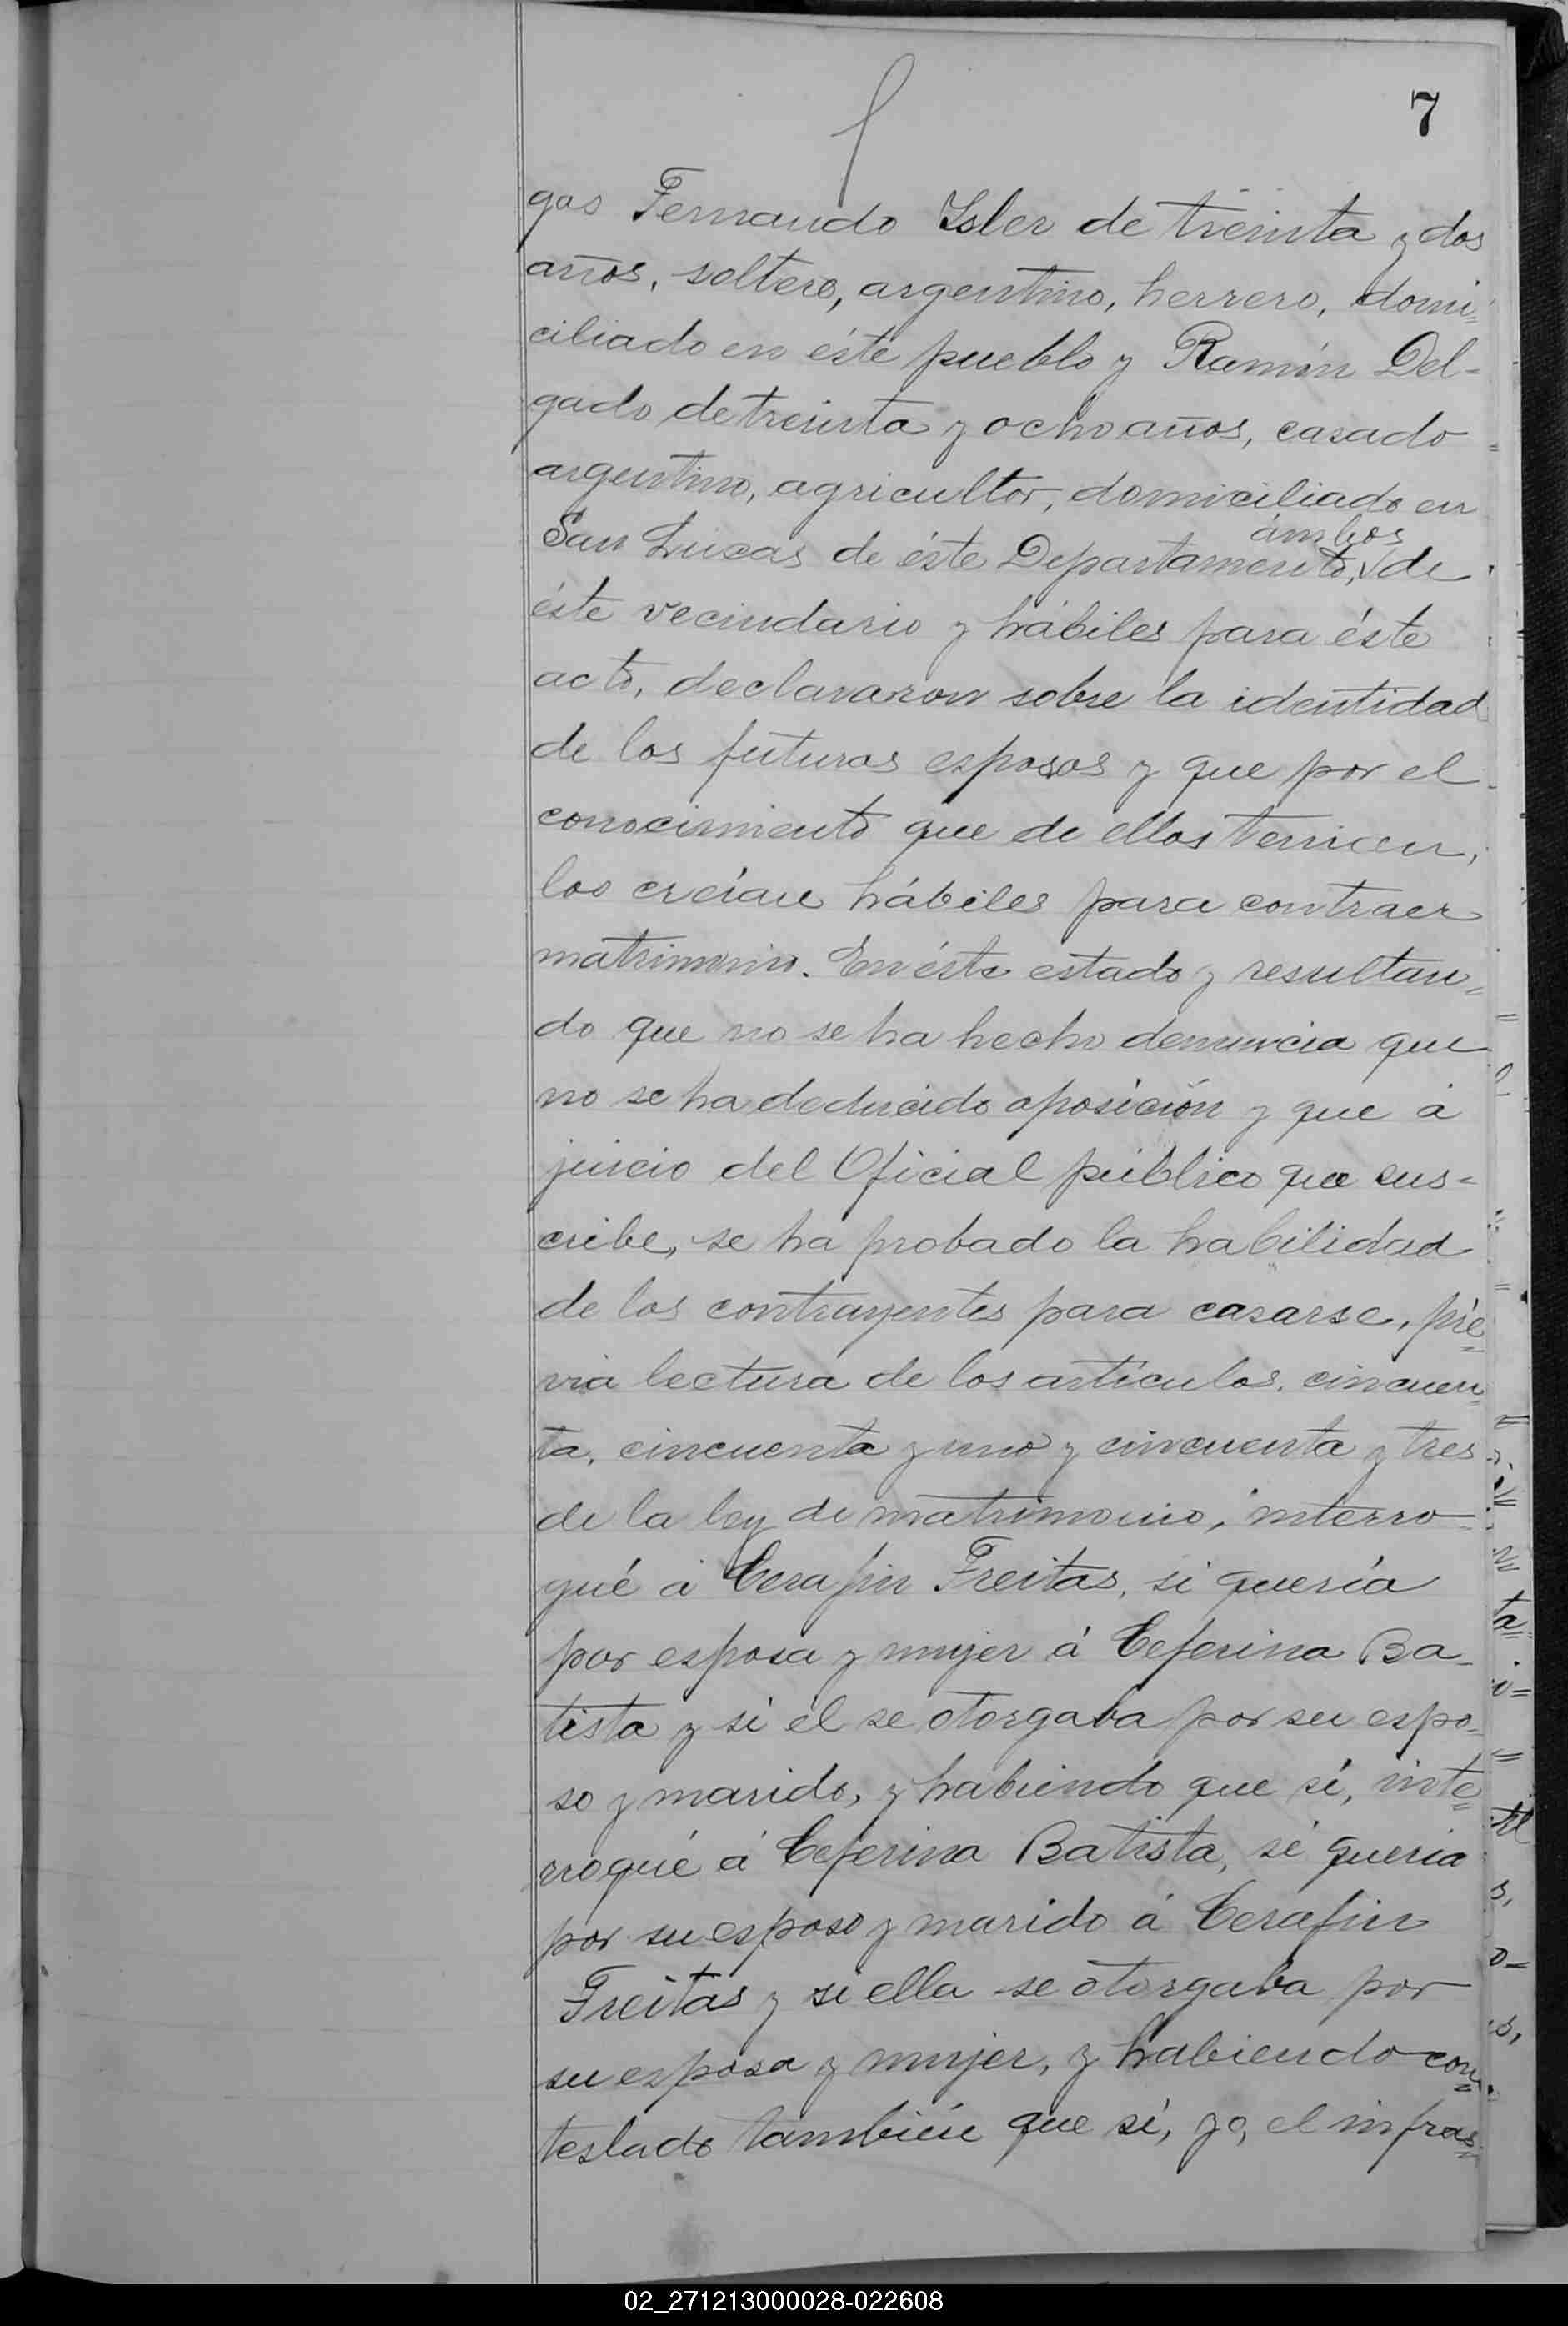 7
gos Fernando Isler de treinta y dos
años, soltero, argentino, herrero, domi=
ciliado en éste pueblo y Ramón Del-
gado de treinta y ocho años, casado
argentino, agricultor, domiciliado en
ámbos
San Lucas de éste Departamento, √ de
éste vecindario y hábiles para éste
acto, declararon sobre la identidad
de los futuros esposos y que por el
conocimiento que de ellos tenian,
los creían hábiles para contraer
matrimonio. En éste estado y resultan=
do que no se ha hecho denuncia que
no se ha deducido oposición y que á
juicio del Oficial público que sus-
cribe, se ha probado la habilidad
de los contrayentes para casarse, pre=
via lectura de los artículos cincuen=
ta, cincuenta y uno y cincuenta y tres
de la ley de matrimonio, interro-
gué á Cerafin Freitas, si quería
por esposa y mujer á Ceferina Ba-
tista y si él se otorgaba por su espo-
so y marido, y habiendo que sí, inte=
rroqué á Ceferina Batista, sé queria
por su esposo y marido á Cerafin
Freitas y si ella se otorgaba por
su esposa y mujer, y habiendo con=
testado también que sí, yo, el infras=
02_271213000028-022608